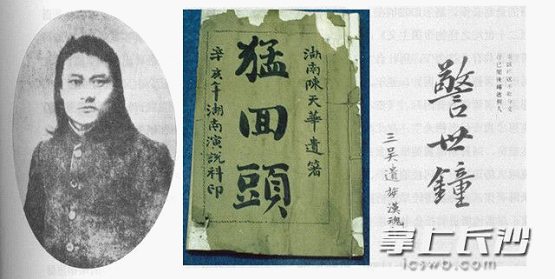 湖南陳天華遺箸
猛回頭
辛亥年湖南演說科印
警世鐘
三吳遺族漢魂
掌上长沙
icswb.com